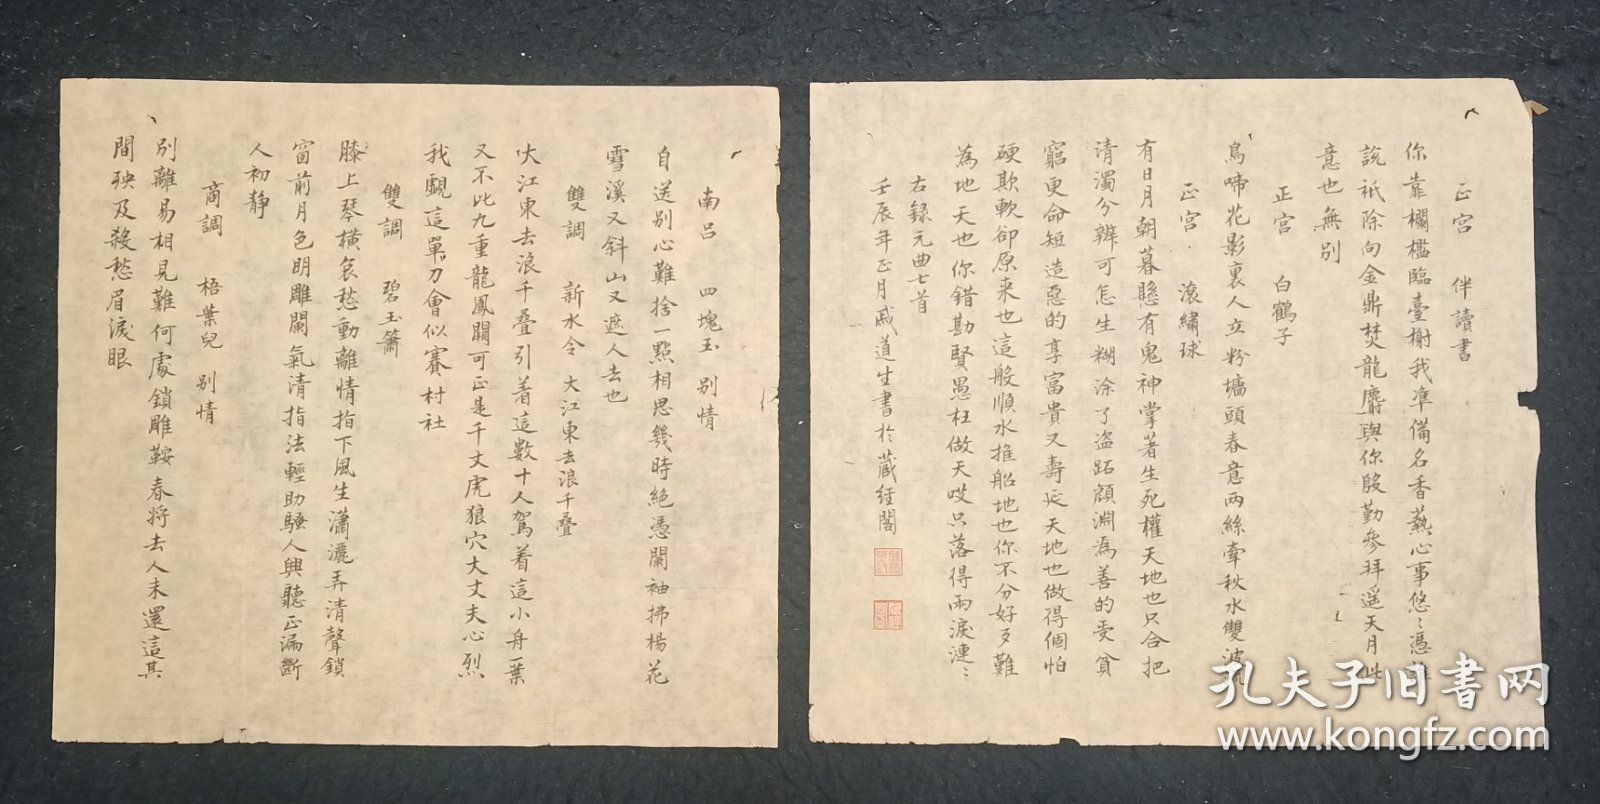 正宮　伴讀書
你靠欄檻臨臺榭我準備名香爇心事悠〻憑誰
說祇除向金鼎焚龍麝與你殷勤參拜遥天月此
意也無別
正宮　白鶴子
鳥啼花影裏人立粉墻頭春意兩絲牽秋水雙波流
正宮　滾繡球
有日月朝暮懸有鬼神掌著生死權天地也只合把
清濁分辨可怎生糊涂了盜跖顔淵為善的受貧
窮更命短造惡的享富貴又壽延天地也做得個怕
硬欺軟卻原来也這般順水推船地也你不分好歹難
為地天也你錯勘賢愚枉做天哎只落得兩淚漣〻
右録元曲七首
壬辰年正月戚道生書於藏經閣
南呂　四塊玉　别情
自送别心難捨一點相思幾時絶憑闌袖拂楊花
雪溪又斜山又遮人去也
雙調　新水令　大江東去浪千叠
大江東去浪千叠引着這數十人駕着這小舟一葉
又不比九重龍鳳闕可正是千丈虎狼穴大丈夫心烈
我覷這單刀會似賽村社
雙調　碧玉簫
膝上琴橫哀愁動離情指下風生瀟灑弄清聲鎖
窗前月色明雕闌氣清指法輕助騷人興聽正漏斷
人初静
商調　梧葉兒　别情
别離易相見難何處鎖雕鞍春将去人未還這其
間殃及殺愁眉淚眼
孔夫子旧書网
www.kongfz.com